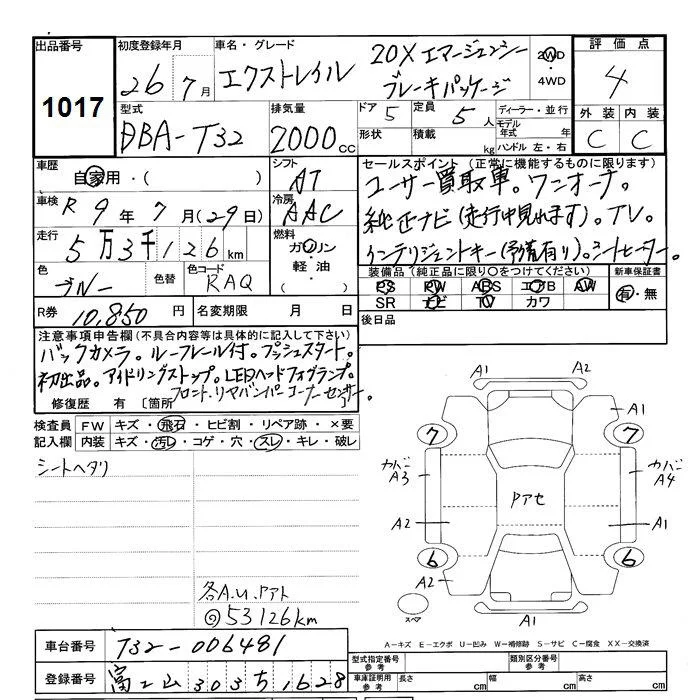 出品番号
1017
初度登録年月
26年 7月
車名・グレード
エクストレイル
20X エマージェンシー
ブレーキパッケージ
2WD
・4WD
評価点
4
外装 内装
C C
型式
DBA-T32
排気量
2000cc
ドア 5
定員 5人
形状
積載 kg
ディーラー・並行
モデル年式 年
ハンドル 左・右
車歴
自家用・( )
シフト
AT
車検
R 9年 7月(29日)
冷房
AAC
走行
5万3千126km
燃料
ガソリン
軽油・
( )
色
ブルー
色替
色コード
RAQ
R券
10,850円
名変期限 月 日
セールスポイント (正常に機能するものに限ります)
ユーザー買取車。ワンオーナ。
純正ナビ(走行中見れます)。TV。
インテリジェントキー(予備有り)。シートヒーター。
装備品(純正品に限り○をつけてください)
新車保証書
PS PW ABS エアB AW
SR ナビ TV カワ
有・無
後日品
注意事項申告欄(不具合内容等は具体的に記入して下さい)
バックカメラ。ルーフレール付。プッシュスタート。
初出品。アイドリングストップ。LEDヘッドフォグランプ。
フロント.リヤバンパーコーナーセンサー。
修復歴 有 [箇所 ]
検査員記入欄
FW キズ・飛石・ヒビ割・リペア跡・×要
内装 キズ・汚レ・コゲ・穴・スレ・キレ・破レ
シートヘタリ
各A.U.Pアト
◎53126km
A1 A2
A1
7 7
カバー A3
カバー A4
Pアセ
A2 A1
6 6
A2
スペア
A1
A-キズ E-エクボ U-凹み W-補修跡 S-サビ C-腐食 XX-交換済
車台番号
T32-006481
登録番号
富士山 303 ち 1628
型式指定番号 参考
類別区分番号 参考
車庫証明用 参考
長さ cm
幅 cm
高さ cm